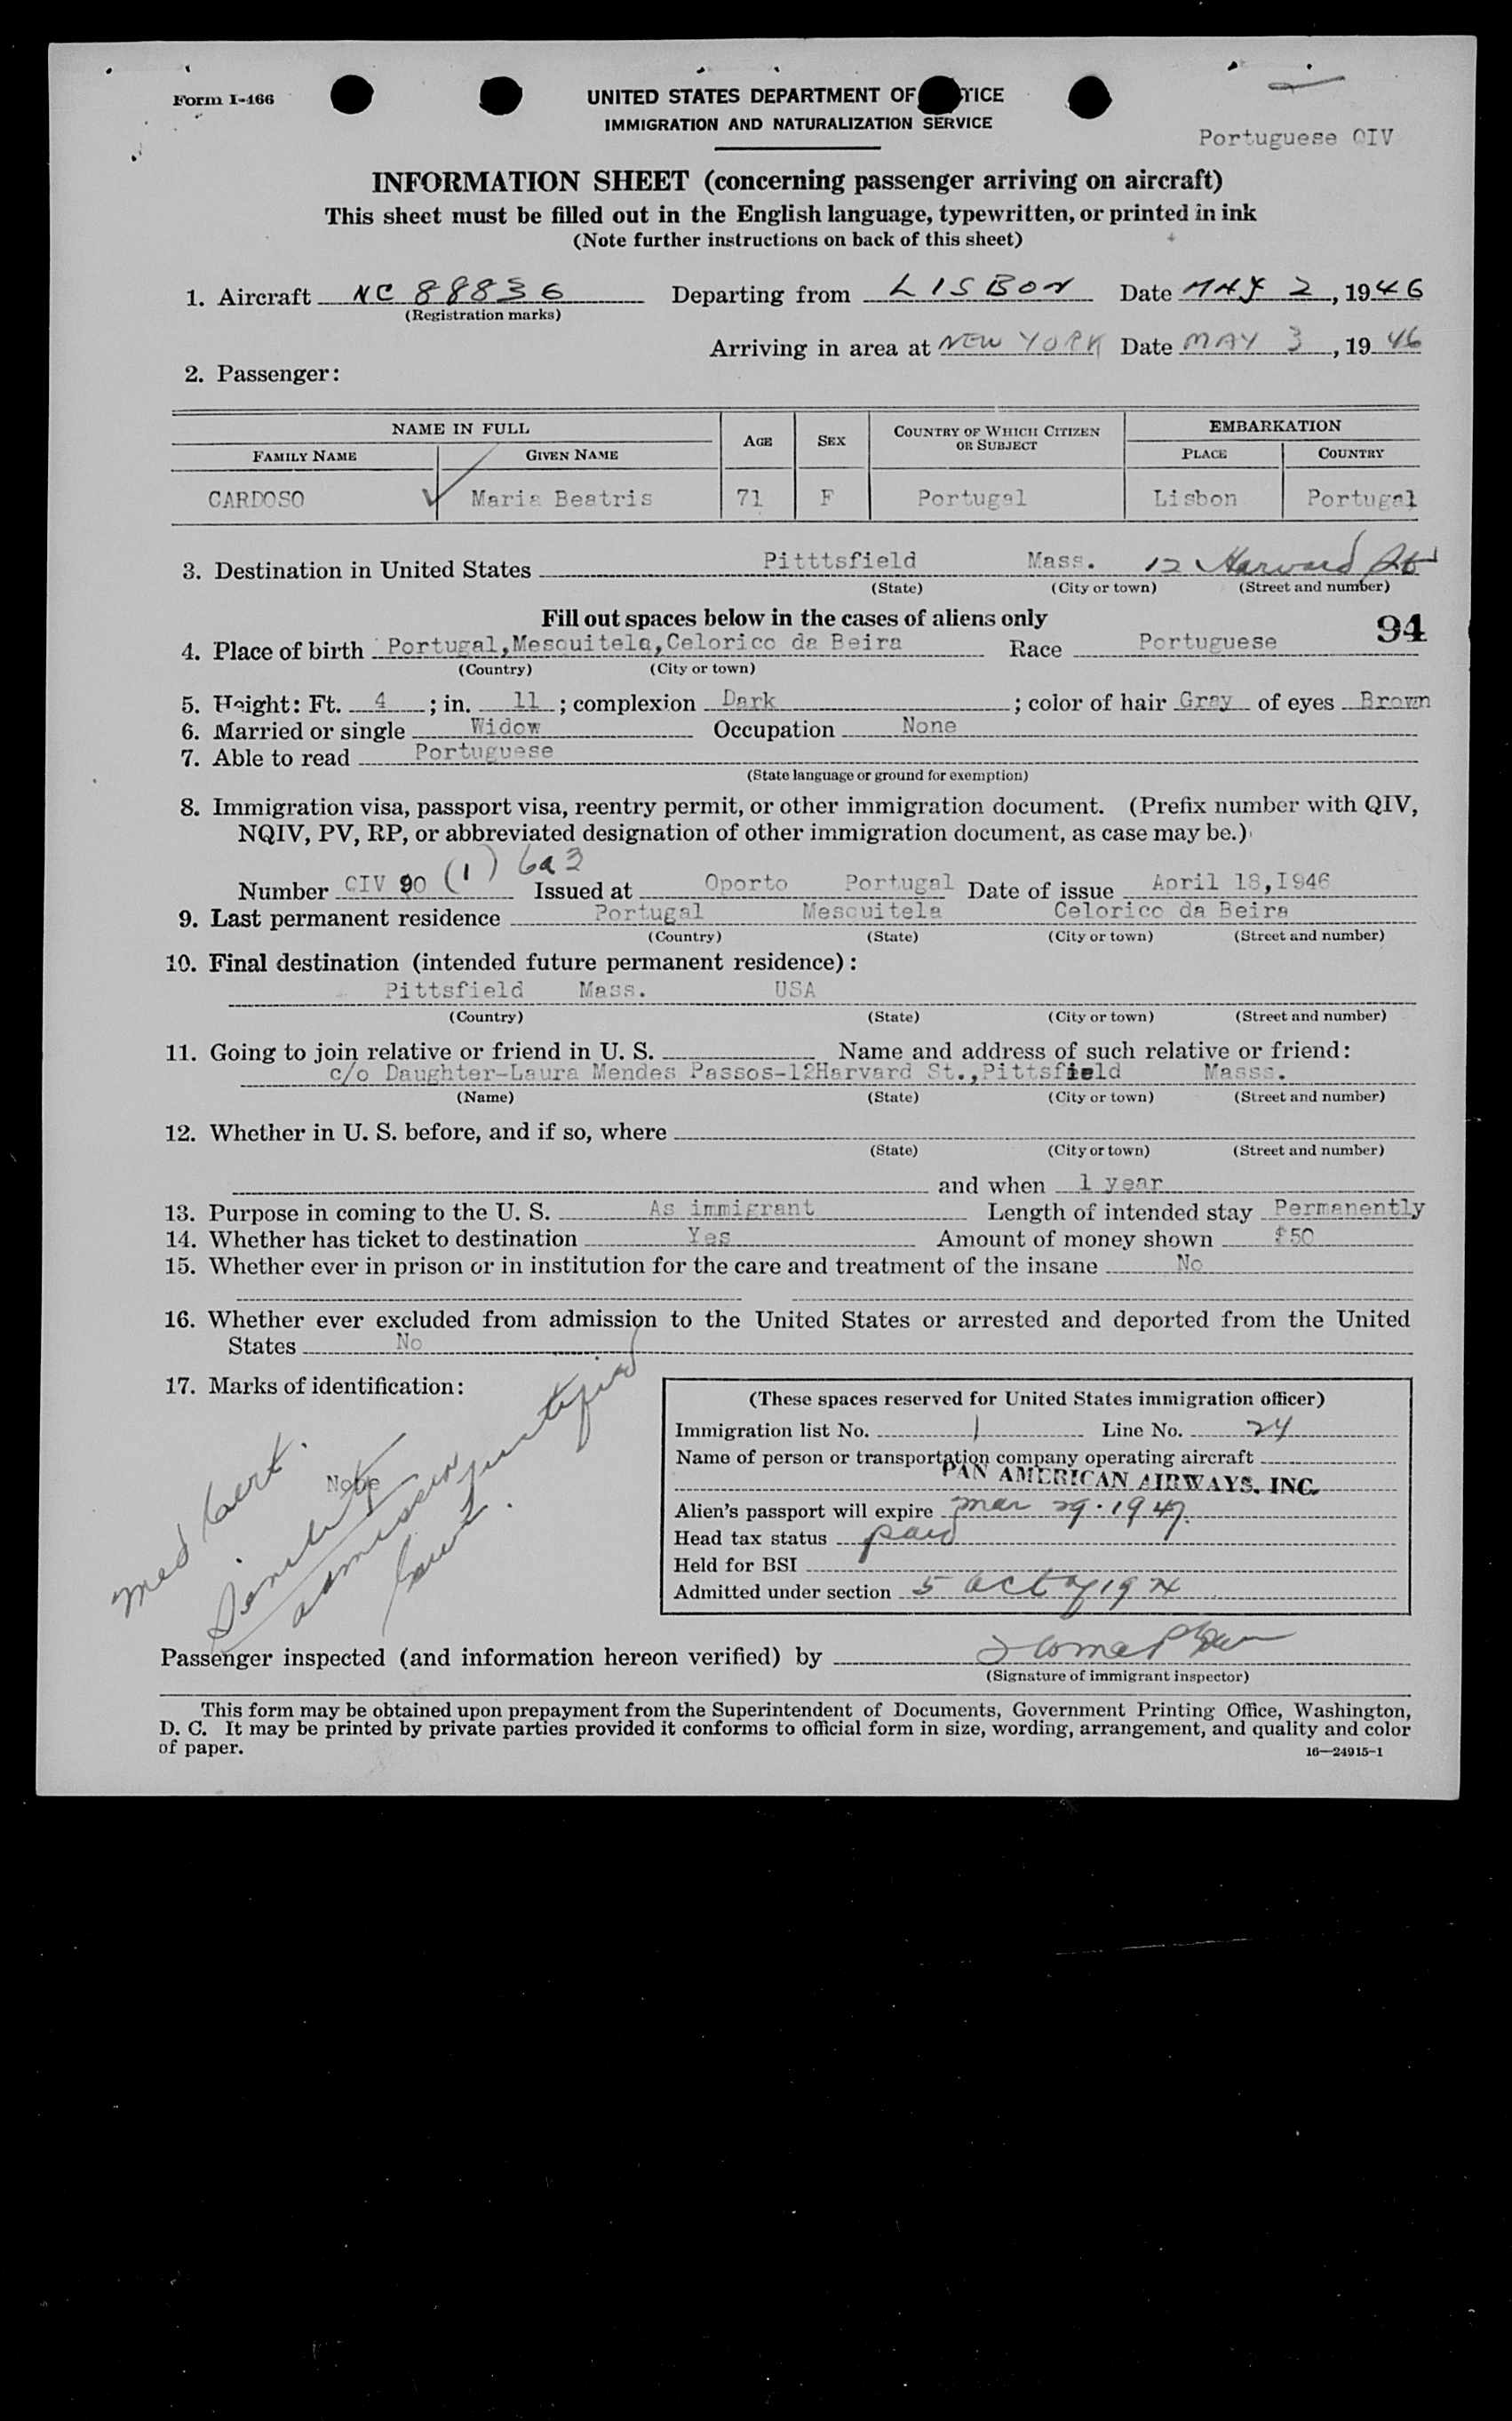 Form I-466
UNITED STATES DEPARTMENT OF TICE
IMMIGRATION AND NATURALIZATION SERVICE
Portuguese QIV
INFORMATION SHEET (concerning passenger arriving on aircraft)
This sheet must be filled out in the English language, typewritten, or printed in ink
(Note further instructions on back of this sheet)
1. Aircraft NC 88836 Departing from LISBON Date MAY 2, 1946
(Registration marks)
Arriving in area at NEW YORK Date MAY 3, 1946
2. Passenger:
NAME IN FULL AGE SEX COUNTRY OF WHICH CITIZEN OR SUBJECT EMBARKATION
FAMILY NAME GIVEN NAME PLACE COUNTRY
CARDOSO Maria Beatris 71 F Portugal Lisbon Portugal
3. Destination in United States Pitttsfield Mass. 12 Harvard St
(State) (City or town) (Street and number)
Fill out spaces below in the cases of aliens only
94
4. Place of birth Portugal, Mesquitela, Celorico da Beira Race Portuguese
(Country) (City or town)
5. Height: Ft. 4; in. 11; complexion Dark; color of hair Gray of eyes Brown
6. Married or single Widow Occupation None
7. Able to read Portuguese
(State language or ground for exemption)
8. Immigration visa, passport visa, reentry permit, or other immigration document. (Prefix number with QIV,
NQIV, PV, RP, or abbreviated designation of other immigration document, as case may be.)
Number QIV 90 (1) 6a3 Issued at Oporto Portugal Date of issue April 18, I946
9. Last permanent residence Portugal Mesquitela Celorico da Beira
(Country) (State) (City or town) (Street and number)
10. Final destination (intended future permanent residence):
Pittsfield Mass. USA
(Country) (State) (City or town) (Street and number)
11. Going to join relative or friend in U. S. Name and address of such relative or friend:
c/o Daughter-Laura Mendes Passos-12Harvard St., Pittsfield Masss.
(Name) (State) (City or town) (Street and number)
12. Whether in U. S. before, and if so, where
(State) (City or town) (Street and number)
and when 1 year
13. Purpose in coming to the U. S. As immigrant Length of intended stay Permanently
14. Whether has ticket to destination Yes Amount of money shown $50
15. Whether ever in prison or in institution for the care and treatment of the insane No
16. Whether ever excluded from admission to the United States or arrested and deported from the United
States No
17. Marks of identification:
None
med Cert.
Senility
admission justified
(These spaces reserved for United States immigration officer)
Immigration list No. 1 Line No. 24
Name of person or transportation company operating aircraft
PAN AMERICAN AIRWAYS, INC.
Alien's passport will expire Mar 29 . 1947.
Head tax status paid
Held for BSI
Admitted under section 5 act of 1924
Passenger inspected (and information hereon verified) by
(Signature of immigrant inspector)
This form may be obtained upon prepayment from the Superintendent of Documents, Government Printing Office, Washington,
D. C. It may be printed by private parties provided it conforms to official form in size, wording, arrangement, and quality and color
of paper.
16—24915-1